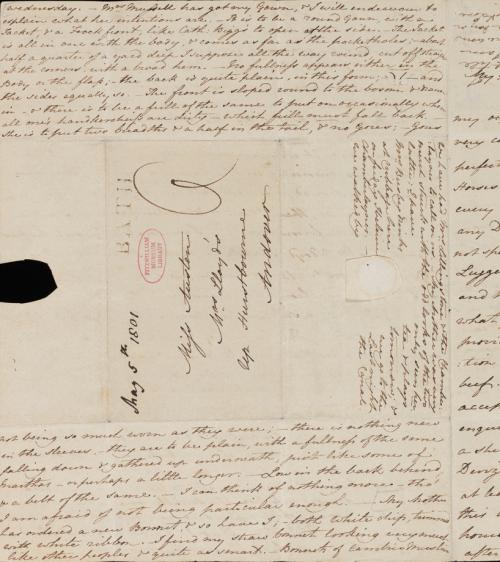 wednesday. - Mrs Mussell has got my Gown, & I will endeavour to
explain what her intentions are. - It is to be a round Gown, with a
Jacket, & a Frock front, like Cath: Bigg's to open at the side. - The Jacket
is all in one with the body, & comes as far as the pocketholes; - about
half a quarter of a yard deep I suppose all the way round, cut off straight
at the corners, with a broad hem. - No fullness appears either in the
Body or the flap; - the back is quite plain, in this form; - and
the sides equally so. - The front is sloped round to the bosom & drawn
in - & there is to be a frill of the same to put on occasionally when
all one's handkercheifs are dirty - which frill must fall back. -
She is to put two breadths & a half in the tail, & no Gores; - Gores
BATH
FITZWILLIAM
MUSEUM
LIBRARY
May 5th 1801
Miss Austen
Mrs Lloyd's
Up Hurstbourne
Andover
Mrs Lillingstone & the Chamber:
-laynes to call on us. - My Mother
struck with the odd looks of the two
latter; I have only seen her.
Mrs Busby drinks tea & plays
at Cribbage here tomorrow; &
on friday I beleive we go to the
Chamberlaynes. - Last night
we walked by the Canal.
not being so much worn as they were; - there is nothing new
in the sleeves, - they are to be plain, with a fullness of the same
falling down & gathered up underneath, just like some of
Marthas - or perhaps a little longer. - Low in the back behind,
& a belt of the same. - I can think of nothing more - tho'
I am afraid of not being particular enough. - My Mother
has ordered a new Bonnet, & so have I; - both white strip, trimmed
with white ribbon. - I find my straw bonnet looking very much
like other peoples & quite as smart. - Bonnets of Cambric Muslin
My
my
very
perfe
Horse
every
any D
not sp
Lugge
and
what
provi
:tion
beef
accep
enqui
a she
Deviz
at le
this
hous
after